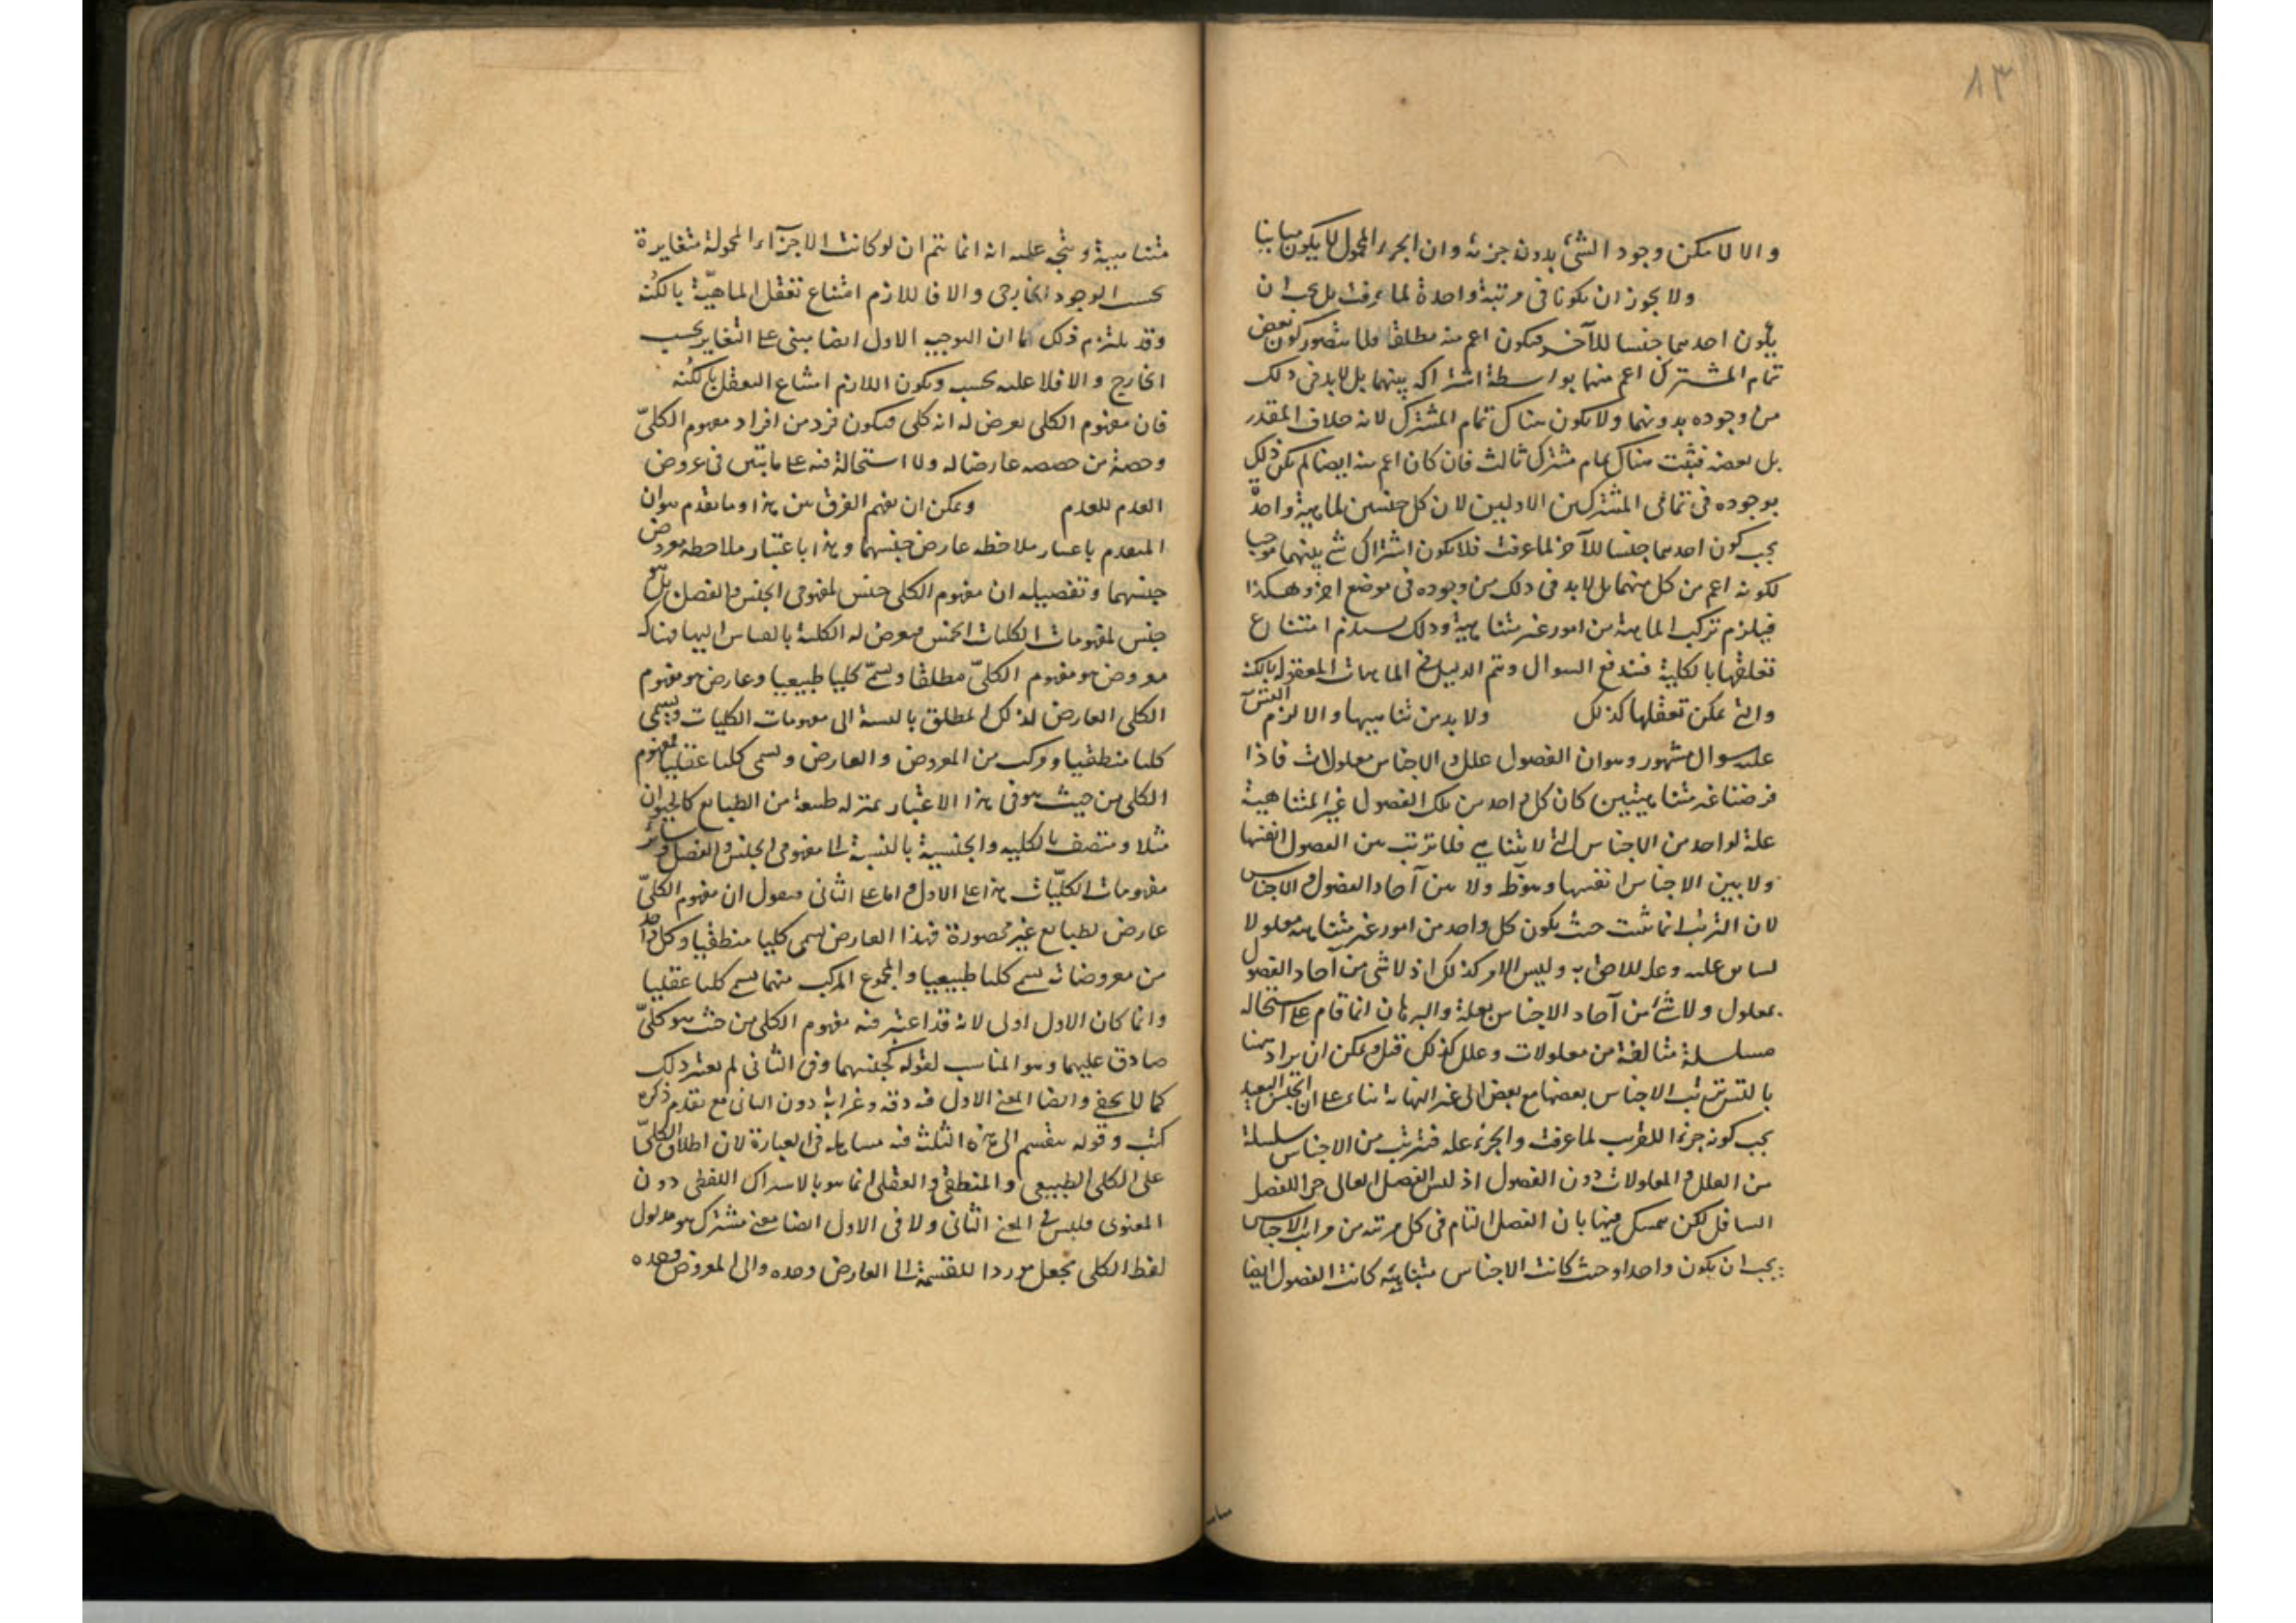 ٨٣
والا لامكن وجود الشئ بدون جزئه وان الجزء المحمول لا يكون مباينا
ولا يجوز ان يكونا فى مرتبة واحدة لما عرفت بل يجب ان
يكون احدهما جنسا للآخر فيكون اعم منه مطلقا فلا يتصور كون بعض
تمام المشترك اعم منهما بواسطة اشتراكه بينهما بل لابد فى ذلك
من وجوده بدونهما ولا يكون هناك تمام المشترك لانه خلاف المقدر
بل بعضه فيثبت هناك تمام مشترك ثالث فان كان اعم منه ايضا لم يكن ذلك
بوجوده فى تمامى المشتركين الاوليين لان كل جنسين لماهية واحدة
يجب كون احدهما جنسا للآخر لما عرفت فلا يكون اشتراك شئ بينهما موجبا
لكونه اعم من كل منهما بل لابد فى ذلك من وجوده فى موضع اخر وهكذا
فيلزم تركب الماهية من امور غير متناهية وذلك يستلزم امتناع
تعلقها بالكلية فيندفع السوال ويتم الدليل فى الماهيات المعقولة بالكنه
والتى يمكن تعقلها كذلك ولابد من تناهيها والا لزم التس
عليه سوال مشهور وهو ان الفصول علل والاجناس معلولات فاذا
فرضنا غير متناهيتين كان كل واحد من تلك الفصول الغير المتناهية
علة لواحد من الاجناس التى لا يتناهى فلا ترتب بين الفصول انفسها
ولا بين الاجناس انفسها وهو ظ ولا بين آحاد الفصول والاجناس
لان الترتب انما يثبت حيث يكون كل واحد من امور غير متناهية معلولا
لسابق عليه وعلة للاحق به وليس الامر كذلك اذ لا شئ من آحاد الفصول
بمعلول ولا شئ من آحاد الاجناس بعلة والبرهان انما قام على استحالة
سلسلة متالفة من معلولات وعلل كذلك قيل ويمكن ان يراد ههنا
بالتس ترتب الاجناس بعضها مع بعض الى غير النهاية بناء على ان الجنس البعيد
يجب كونه جزءا للقريب لما عرفت والجزء علة فترتب من الاجناس سلسلة
من العلل والمعلولات دون الفصول اذ ليس الفصل العالى جزءا للفصل
السافل لكن يتمسك فيها بان الفصل التام فى كل مرتبة من مراتب الاجناس
يجب ان يكون واحدا وحيث كانت الاجناس متناهية كانت الفصول ايضا
متناهية ويتجه عليه انه انما يتم ان لو كانت الاجزآء المحمولة متغايرة
بحسب الوجود الخارجى والا فاللازم امتناع تعقل الماهيّة بالكُنه
وقد يلتزم ذلك كما ان التوجيه الاول ايضا مبنى على التغاير بحسب
الخارج والا فلا علية بحسب ويكون اللازم امتناع التعقل بالكنه
فان مفهوم الكلى يعرض له انه كلى فيكون فرد من افراد مفهوم الكلىّ
وحصة من حصصه عارضا له ولا استحالة فيه على ما يتبين فى عروض
العدم للعدم ويمكن ان يفهم الفرق بين هذا وما تقدم هو ان
المتقدم باعتبار ملاحظة عارض جنسهما وهذا باعتبار ملاحظة معروض
جنسهما وتفصيله ان مفهوم الكلى جنس لمفهومى الجنس والفصل بل هو
جنس لمفهومات الكليات الخمس فيعرض له الكلية بالقياس اليها فهناك
معروض هو مفهوم الكلىّ مطلقا ويسمّى كليا طبيعيا وعارض هو مفهوم
الكلى العارض لذلك المطلق بالنسبة الى مفهومات الكليات ويسمى
كليا منطقيا ومركب من المعروض والعارض ويسمى كليا عقليا فمفهوم
الكلى من حيث هو فى هذا الاعتبار بمنزلة طبيعة من الطبايع كالحيوان
مثلا ومتصف بالكلية والجنسية بالنسبة الى مفهومى الجنس والفصل وسائر
مفهومات الكليّات هذا على الاول واما على الثانى فنقول ان مفهوم الكلىّ
عارض لطبايع غير محصورة فهذا العارض يسمى كليا منطقيا وكل واحد
من معروضاته يسمى كليا طبيعيا والمجموع المركب منهما يسمى كليا عقليا
وانما كان الاول اولى لانه قد اعتبر فيه مفهوم الكلى من حيث هو كلىّ
صادق عليهما وهو المناسب لقوله كجنسهما وفى الثانى لم يعتبر ذلك
كما لا يخفى وايضا المعنى الاول فيه دقة وغرابة دون الثانى مع تقدم ذكره
كتب وقوله ينقسم الى هذه الثلث فيه مساهلة فى العبارة لان اطلاق الكلىّ
على الكلى الطبيعى والمنطقى والعقلى انما هو بالاشتراك اللفظى دون
المعنوى فليس فى المعنى الثانى ولا فى الاول ايضا معنى مشترك هو مدلول
لفظ الكلى يجعل موردا للقسمة الى العارض وحده والى المعروض وحده